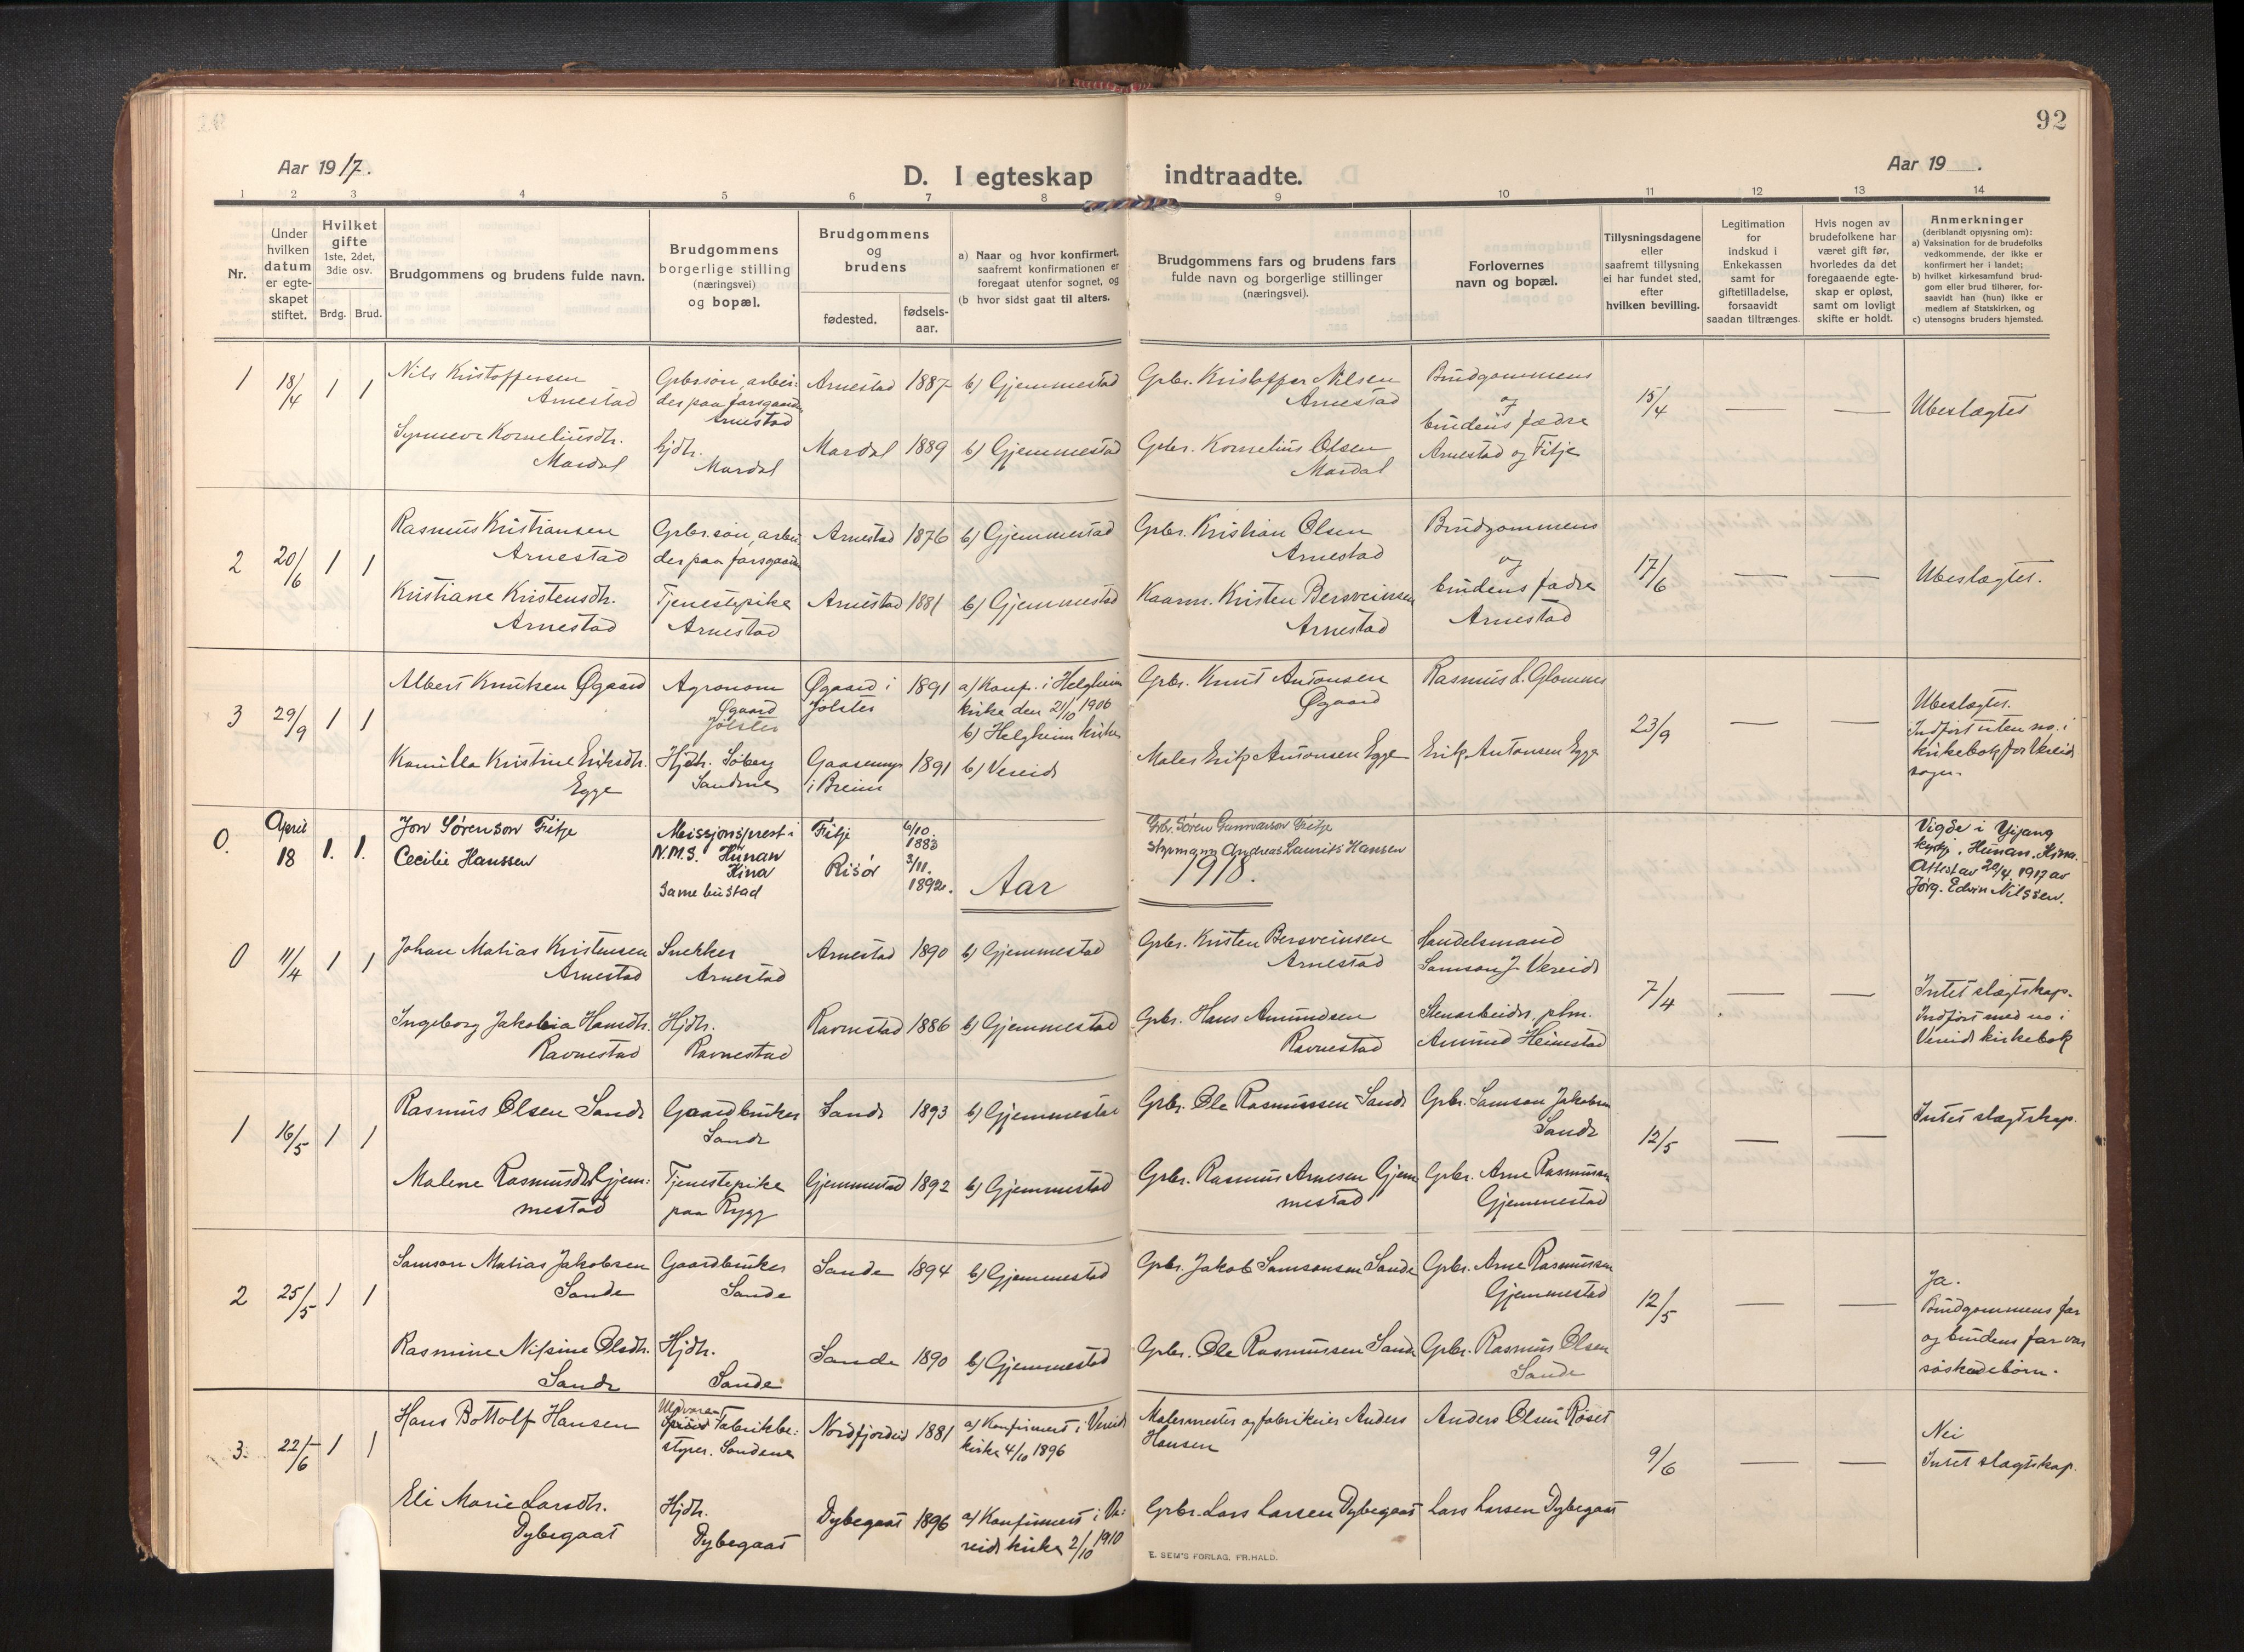 92
Aar 1917.
D. I egteskap indtraadte.
Aar 19 .
1 2 3 4 5 6 7 8 9 10 11 12 13 14
Nr.
Under hvilken datum er egte-skapet stiftet.
Hvilket gifte 1ste, 2det, 3die osv.
Brdg. Brud.
Brudgommens og brudens fulde navn.
Brudgommens borgerlige stilling (næringsvei) og bopæl.
Brudgommens og brudens
fødested.
fødsels-aar.
a) Naar og hvor konfirmert, saafremt konfirmationen er foregaat utenfor sognet, og
(b hvor sidst gaat til alters.
Brudgommens fars og brudens fars fulde navn og borgerlige stillinger (næringsvei).
Forlovernes navn og bopæl.
Tillysningsdagene eller saafremt tillysning ei har fundet sted, efter hvilken bevilling.
Legitimation for indskud i Enkekassen samt for giftetilladelse, forsaavidt saadan tiltrænges.
Hvis nogen av brudefolkene har været gift før, hvorledes da det foregaaende egte-skap er opløst, samt om lovligt skifte er holdt.
Anmerkninger
(deriblandt oplysning om):
a) Vaksination for de brudefolks vedkommende, der ikke er konfirmert her i landet;
b) hvilket kirkesamfund brud-gom eller brud tilhører, for-saavidt han (hun) ikke er medlem af Statskirken, og
c) utensogns bruders hjemsted.
1 18/4 1 1
Nils Kristoffersen Arnestad
Gbr.søn, arbei: der paa farsgaarden Arnestad
Arnestad 1887 b) Gjemmestad
Gbr. Kristoffer Nilsen Arnestad
Brudgommens og brudens fædre Arnestad og Fitje
15/4 — —
Ubeslægtet
Synneve Korneliusdtr. Mardal
Hjdtr. Mardal
Mardal 1889 b) Gjemmestad
Gbr. Kornelius Olsen Mardal
2 20/6 1 1
Rasmus Kristiansen Arnestad
Gbr.søn, arbei der paa farsgaarden
Arnestad 1876 b) Gjemmestad
Gbr. Kristian Olsen Arnestad
Brudgommens og brudens fædre Arnestad
17/6 — —
Ubeslægtet.
Kristiane Kristensdtr. Arnestad
Tjenestepike Arnestad
Arnestad 1881 b) Gjemmestad
Kaarm. Kristen Bersveinsen Arnestad
3 29/9 1 1
Albert Knutsen Øgaard
Agronom Øgaard Jølster
Øgaard i Jølster 1891
a/ Konf. i Helgheim kirke den 21/10 1906
b) Helgheim kirke
Gbr. Knut Antonsen Øgaard
Rasmus L. Glomnes
23/9 — —
Ubeslægtet. Indført uten no. i kirkebok for Vereid sogn.
Kamilla Kristine Eriksdtr. Egge
Hjdtr. Søberg Sandene
i Breim 1891 b) Vereid
Maler Erik Antonsen Egge
Erik Antonsen Egge
0. April 18 1. 1.
Jon Sørenson Fitje
Cecilie Hanssen
Missjonsprest i N.M.S. Hunan Kina
Same bustad
Fitje 6/10. 1883
Risør 3/11. 1892.
Gbr. Søren Gunnarson Fitje
Styrmann Andreas Laurits Hansen
Vigde i Yiyang kyrkj. Hunan. Kina. Attest av 20/4 1917 av Jørg. Edvin Nilssen.
Aar 1918.
0 11/4 1 1
Johan Matias Kristensen Arnestad
Snekker Arnestad
Arnestad 1890 b) Gjemmestad
Gbr. Kristen Bersveinsen Arnestad
Handelsmand Samson J. Vereid
7/4 — —
Intet slægtskap. Indført med no i Vereid kirkebok
Ingeborg Jakobia Hansdtr. Ravnestad
Hjdtr. Ravnestad
Ravnestad 1886 b) Gjemmestad
Gbr. Hans Amundsen Ravnestad
Stenarbeider, plm. Amund Heimestad
1 16/5 1 1
Rasmus Olsen Sande
Gaardbruker Sande
Sande 1893 b) Gjemmestad
Gbr. Ole Rasmussen Sande
Gbr. Samson Jakobsen Sande
12/5 — —
Intet slægtskap.
Malene Rasmusdtr Gjem: mestad
Tjenestepike paa Rygg
Gjemmestad 1892 b) Gjemmestad
Gbr. Rasmus Arnesen Gjem mestad
Gbr. Arne Rasmussen Gjemmestad
2 25/5 1 1
Samson Matias Jakobsen Sande
Gaardbruker Sande
Sande 1894 b) Gjemmestad
Gbr. Jakob Samsonsen Sande
Gbr. Arne Rasmussen Gjemmestad
12/5 — —
Ja. Brudgommens far og brudens far var søskendebørn.
Rasmine Nilsine Olsdtr. Sande
Hjdtr. Sande
Sande 1890 b) Gjemmestad
Gbr. Ole Rasmussen Sande
Gbr. Rasmus Olsen Sande
3. 22/6 1 1
Hans Bottolf Hansen
Uldvare- fabrikbe: styrer. Sandene
Nordfjordeid 1881
a) Konfirmert i Vereid kirke 4/10 1896
Malermester og fabrikeier Anders Hansen
Anders Olsen Røset
9/6 — —
Nei
Intet slægtskap.
Eli Marie Larsdtr. Dybegaat
Hjdtr. Dybegaat
Dybegaat 1896
a) Konfirmert i Ve: reid kirke 2/10 1910
Gbr. Lars Larsen Dybegaat
Lars Larsen Dybegaat
E. SEM'S FORLAG, FR.HALD.